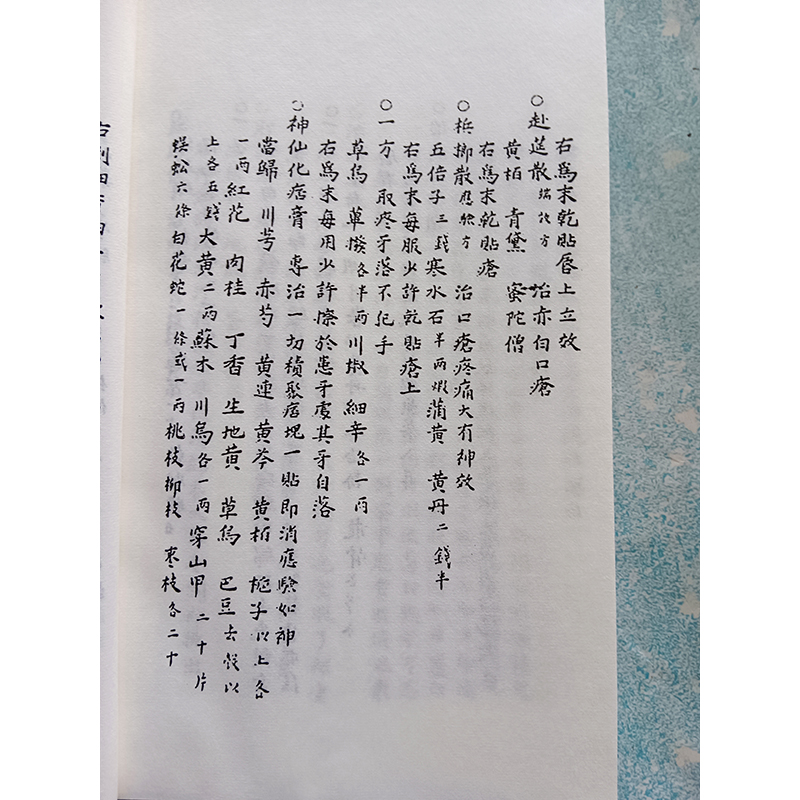 右爲末乾貼唇上立效
○赴莚散 瑞效方 治赤白口瘡
黄栢 青黛 蜜陀僧
右爲末乾貼瘡
○梹榔散 應驗方 治口瘡疼痛大有神效
五倍子三錢寒水石半兩煆蒲黄 黄丹二錢半
右爲末每服少許乾貼瘡上
○一方 取疼牙落不犯手
草烏 蓽撥各半兩川椒 細辛各一兩
右爲末每用少許擦於患牙處其牙自落
○神仙化痞膏 専治一切積聚痞塊一貼即消應驗如神
當歸 川芎 赤芍 黄連 黄芩 黄栢 梔子以上各
一兩紅花 肉桂 丁香 生地黄 草烏 巴豆去殻以
上各五錢大黄二兩蘇木 川烏各一兩穿山甲二十片
蜈蚣六條白花蛇一條或一兩桃枝柳枝 棗枝各二十